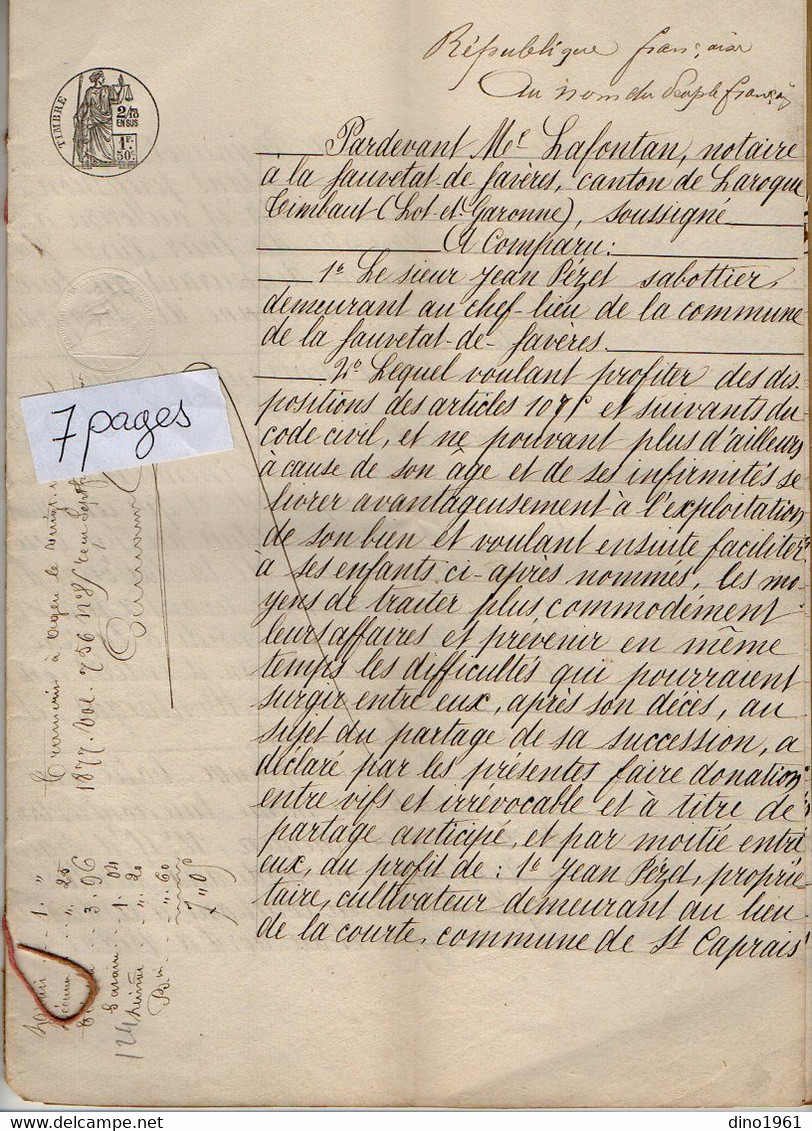 République française
Au nom du Peuple français
TIMBRE
2/10
EN SUS
1F.
50c.
Pardevant Me Lafontan, notaire
à la Sauvetat-de-Savères, canton de Laroque
Timbaut (Lot-et-Garonne), soussigné
A Comparu:
1e Le sieur Jean Pézet sabottier,
demeurant au chef-lieu de la commune
de la Sauvetat-de-Savères.
2e Lequel voulant profiter des dis-
positions des articles 1075 et suivants du
code civil, et ne pouvant plus d'ailleurs
à cause de son âge et de ses infirmités se
livrer avantageusement à l'exploitation
de son bien et voulant ensuite faciliter
à ses enfants ci-après nommés, les mo-
yens de traiter plus commodément
leurs affaires et prévenir en même
temps les difficultés qui pourraient
surgir entre eux, après son décès, au
sujet du partage de sa succession, a
déclaré par les présentes faire donation
entre vifs et irrévocable et à titre de
partage anticipé, et par moitié entre
eux, au profit de: 1e Jean Pézet, proprié
taire, cultivateur demeurant au lieu
de la courte, commune de St Caprais
7 pages
Transcrit à Agen le
1877. Vol. 756 No 8
1. "
". 25
3. 96
1. 04
". 20
". 60
7"05
124
dino1961